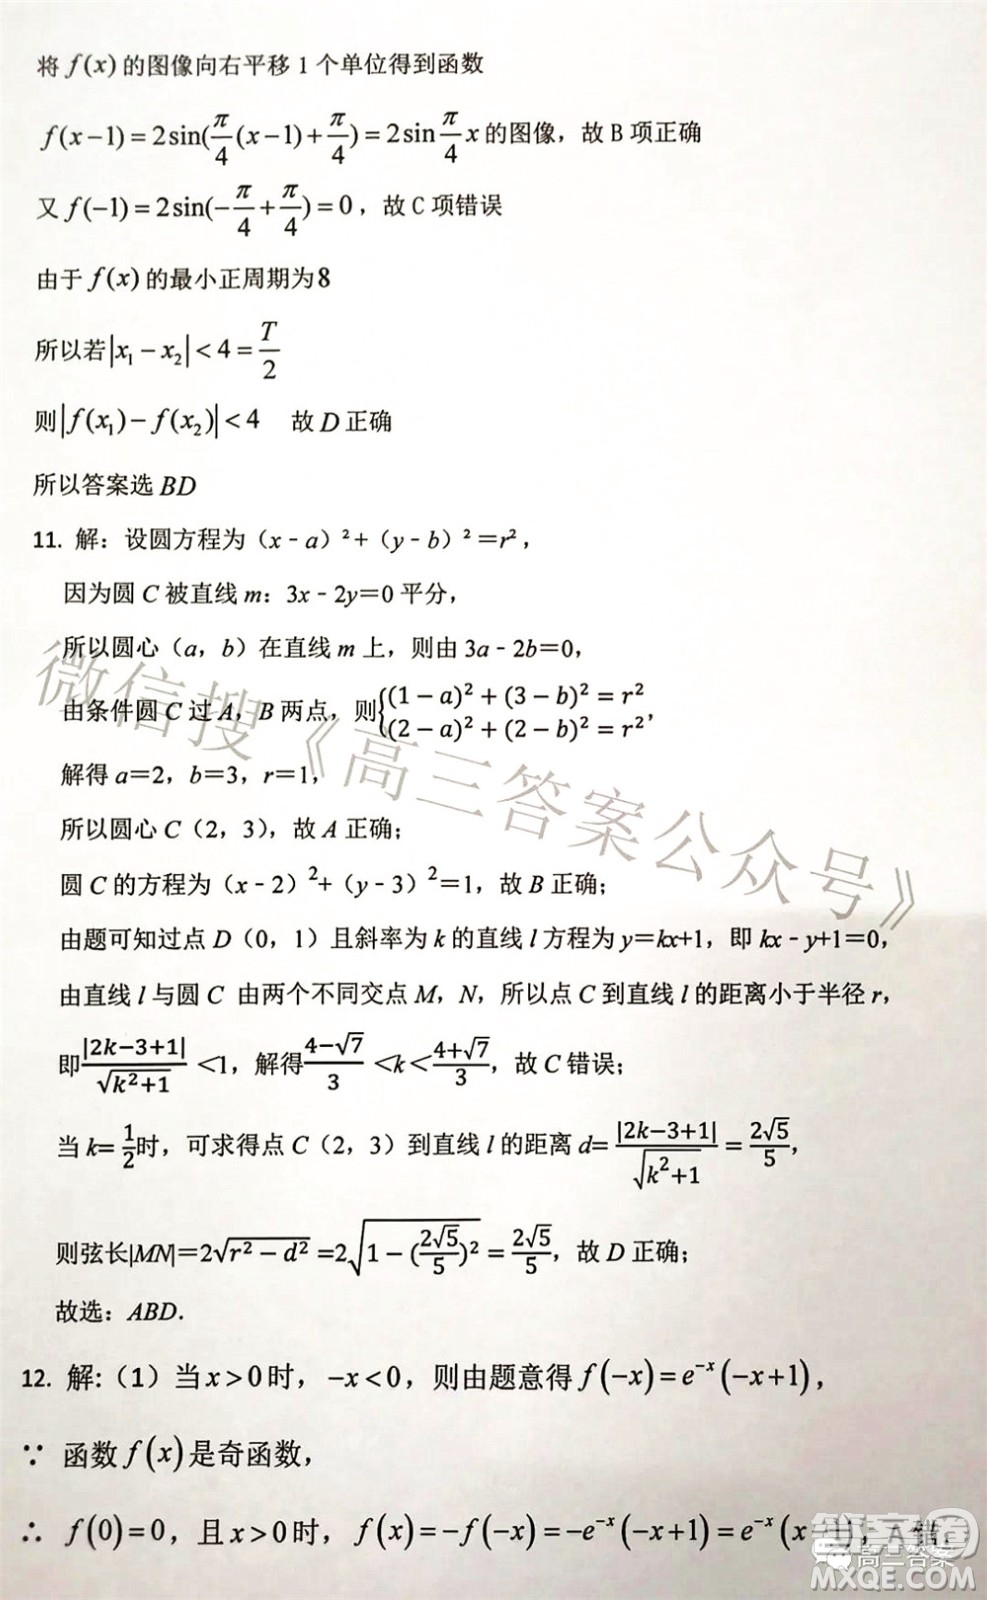 将 f(x) 的图像向右平移 1 个单位得到函数
f(x−1)=2sin(π/4(x−1)+π/4)=2sin π/4 x 的图像，故 B 项正确
又 f(−1)=2sin(−π/4+π/4)=0，故 C 项错误
由于 f(x) 的最小正周期为8
所以若|x₁−x₂|<4=T/2
则|f(x₁)−f(x₂)|<4 故 D 正确
所以答案选 BD
11. 解：设圆方程为（x﹣a）²+（y﹣b）²＝r²，
因为圆 C 被直线 m：3x﹣2y＝0 平分，
所以圆心（a，b）在直线 m 上，则由 3a﹣2b＝0，
由条件圆 C 过 A，B 两点，则{(1−a)²+(3−b)²=r²
(2−a)²+(2−b)²=r²，
解得 a＝2，b＝3，r＝1，
所以圆心 C（2，3），故 A 正确；
圆 C 的方程为（x﹣2）²+（y﹣3）²＝1，故 B 正确；
由题可知过点 D（0，1）且斜率为 k 的直线 l 方程为 y＝kx+1，即 kx﹣y+1＝0，
由直线 l 与圆 C 由两个不同交点 M，N，所以点 C 到直线 l 的距离小于半径 r，
即|2k−3+1|/√(k²+1)＜1，解得(4−√7)/3＜k＜(4+√7)/3，故 C 错误；
当 k=1/2时，可求得点 C（2，3）到直线 l 的距离 d=|2k−3+1|/√(k²+1)=2√5/5，
则弦长|MN|＝2√(r²−d²)=2√(1−(2√5/5)²)=2√5/5，故 D 正确；
故选：ABD．
12. 解:（1）当 x>0 时，−x<0，则由题意得 f(−x)=e⁻ˣ(−x+1)，
∵ 函数 f(x) 是奇函数，
∴ f(0)=0，且 x>0 时，f(x)=−f(−x)=−e⁻ˣ(−x+1)=e⁻ˣ(x−1)，A 错
微信搜《高三答案公众号》
答案卷
高三答案
MXQE.COM